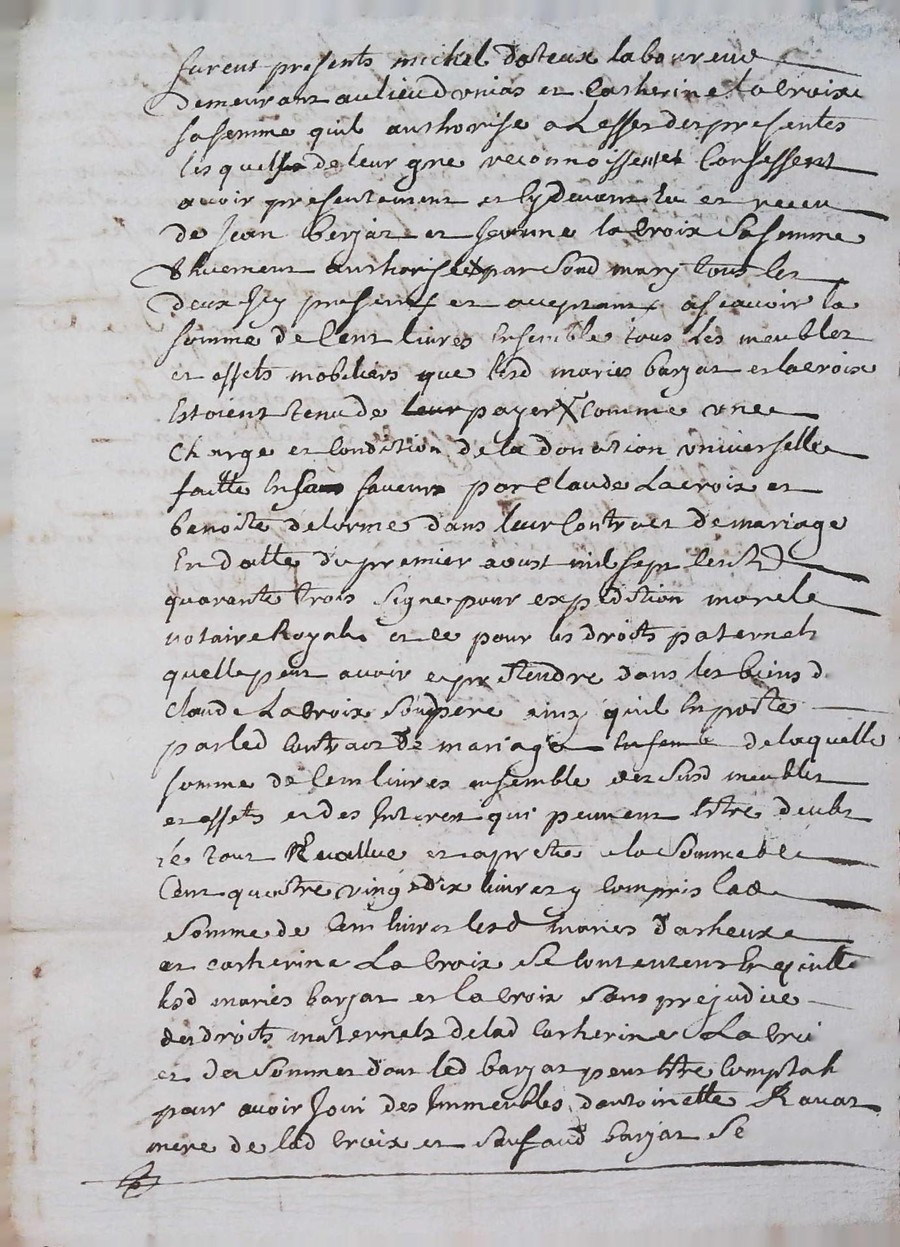 furent presents michel dateux laboureur
demeurant au lieu d unias et Catherine lacroix
sa femme quil authorise a Leffet des presentes
les quels de leur gre reconnoissent et Confessent
avoir presentement et cy devant eu et receu
de jean barjat et jeanne lacroix Sa femme
authorisée par Sond mary tous les
deux Icy presents et acceptants ascavoir la
somme de Cent livres Ensemble tous les meubles
et effets mobiliers que lesd mariés barjat et lacroix
Estoient tenu de leur payer X Comme une
Charge et Condition de la donation universelle
faitte En faveur par Claude Lacroix et
benoite delorme dans leur Contract de mariage
En datte du premier aoust mil sept Cent
quarante trois Signe pour expedition
notaire Royale et ce pour les droits paternels
quelle peut avoir et pretendre dans les biens d
Claude Lacroix Son pere ainsy quil Enporte
par led Contract de mariage de laquelle
somme de Cent livres ensemble des Susd meubles
et effets et des Interest qui peuvent Estre deubs
le tout Evallue et apretié a la Somme de
Cent quatre vingt dix livres y Compris lad
Somme de Cent livres lesd mariés datheux
et catherine Lacroix Se contentent En quitte
lesd mariés barjat et lacroix Sans prejudice
des droits maternels de lad Catherine Lacroi
et des Sommes dont led barjat peut Estre Comptable
pour avoir Joui des Immeubles dantoinette Ravat
mere de lad Croix et Sauf aud barjat Se